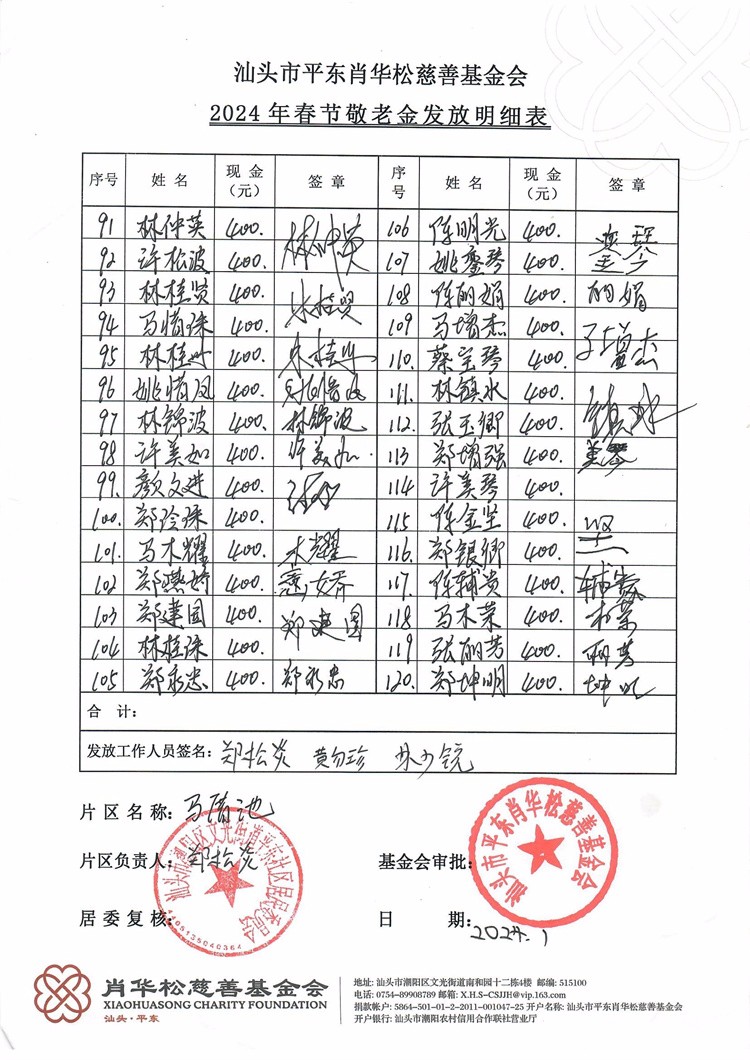 汕头市平东肖华松慈善基金会
2024年春节敬老金发放明细表
序号 姓名 现金（元） 签章 序号 姓名 现金（元） 签章
91 林仲英 400. 林仲英 106 陈明光 400.
92 许松波 400. 107 姚銮琴 400. 銮琴
93 林桂贤 400. 林桂贤 108 陈丽娟 400. 丽娟
94 马惜珠 400. 109 马增杰 400. 马增杰
95 林桂叶 400. 林桂叶 110. 蔡呈琴 400.
96 姚惜凤 400. 姚惜凤 111. 林镇水 400. 镇水
97 林锦波 400. 林锦波 112. 张玉卿 400.
98 许美如 400. 许美如 113 郑增强 400.
99. 颜文进 400. 114 许美琴 400. 美琴
100. 郑玲珠 400. 115 陈金坚 400. 坚
101. 马木耀 400. 木耀 116. 郑银卿 400.
102 郑燕娇 400. 燕娇 117. 陈辅贵 400. 辅贵
103 郑建国 400. 郑建国 118 马木荣 400. 木荣
104 林桂珠 400. 119 张丽芳 400. 丽芳
105 郑永忠 400. 郑永忠 120. 郑坤明 400. 坤明
合 计:
发放工作人员签名: 郑松炎 黄勿珍 林少镜
片区名称: 马清池
片区负责人: 郑松炎 基金会审批:
居委复核: 日 期: 2024.1
汕头市潮阳区文光街道平东社区居民委员会
4405135040364
汕头市平东肖华松慈善基金会
肖华松慈善基金会
XIAOHUASONG CHARITY FOUNDATION
汕头·平东
地址: 汕头市潮阳区文光街道南和园十二栋4楼 邮编: 515100
电话: 0754-89908789 邮箱: X.H.S-CSJJH@vip.163.com
捐款帐号: 5864-501-01-2-2011-001047-25 开户名称: 汕头市平东肖华松慈善基金会
开户银行: 汕头市潮阳农村信用合作联社营业厅